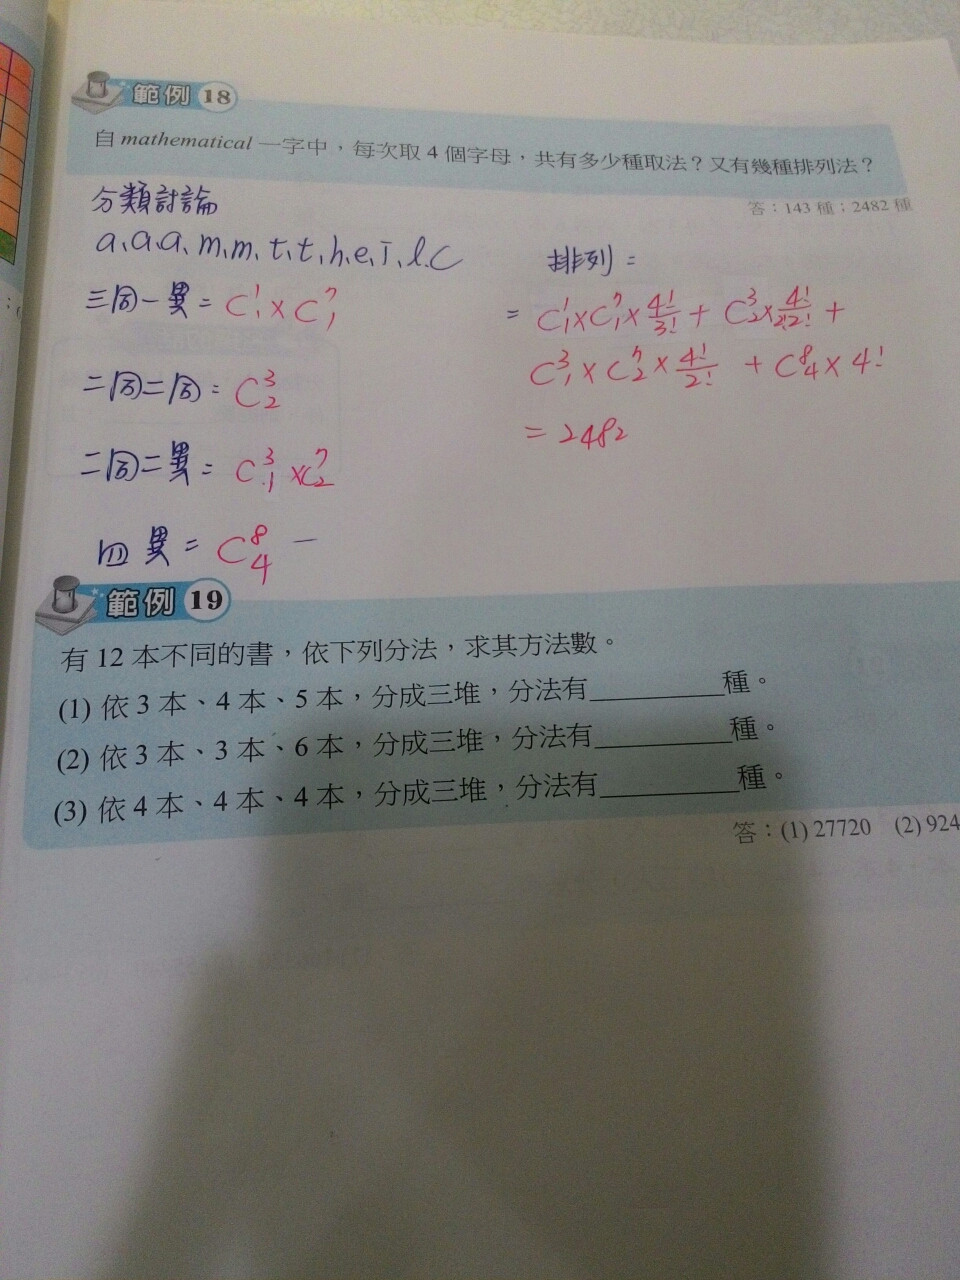 範例 18
自 mathematical 一字中，每次取 4 個字母，共有多少種取法？又有幾種排列法？
答：143 種；2482 種
分類討論
a、a、a、m、m、t、t、h、e、i、l、c
三同一異 = C¹₁ × C⁷₁
二同二同 = C³₂
二同二異 = C³₁ × C⁷₂
四異 = C⁸₄
排列 =
= C¹₁ × C⁷₁ × 4!/3! + C³₂ × 4!/2!2! +
C³₁ × C⁷₂ × 4!/2! + C⁸₄ × 4!
= 2482
範例 19
有 12 本不同的書，依下列分法，求其方法數。
(1) 依 3 本、4 本、5 本，分成三堆，分法有__________種。
(2) 依 3 本、3 本、6 本，分成三堆，分法有__________種。
(3) 依 4 本、4 本、4 本，分成三堆，分法有__________種。
答：(1) 27720 (2) 924